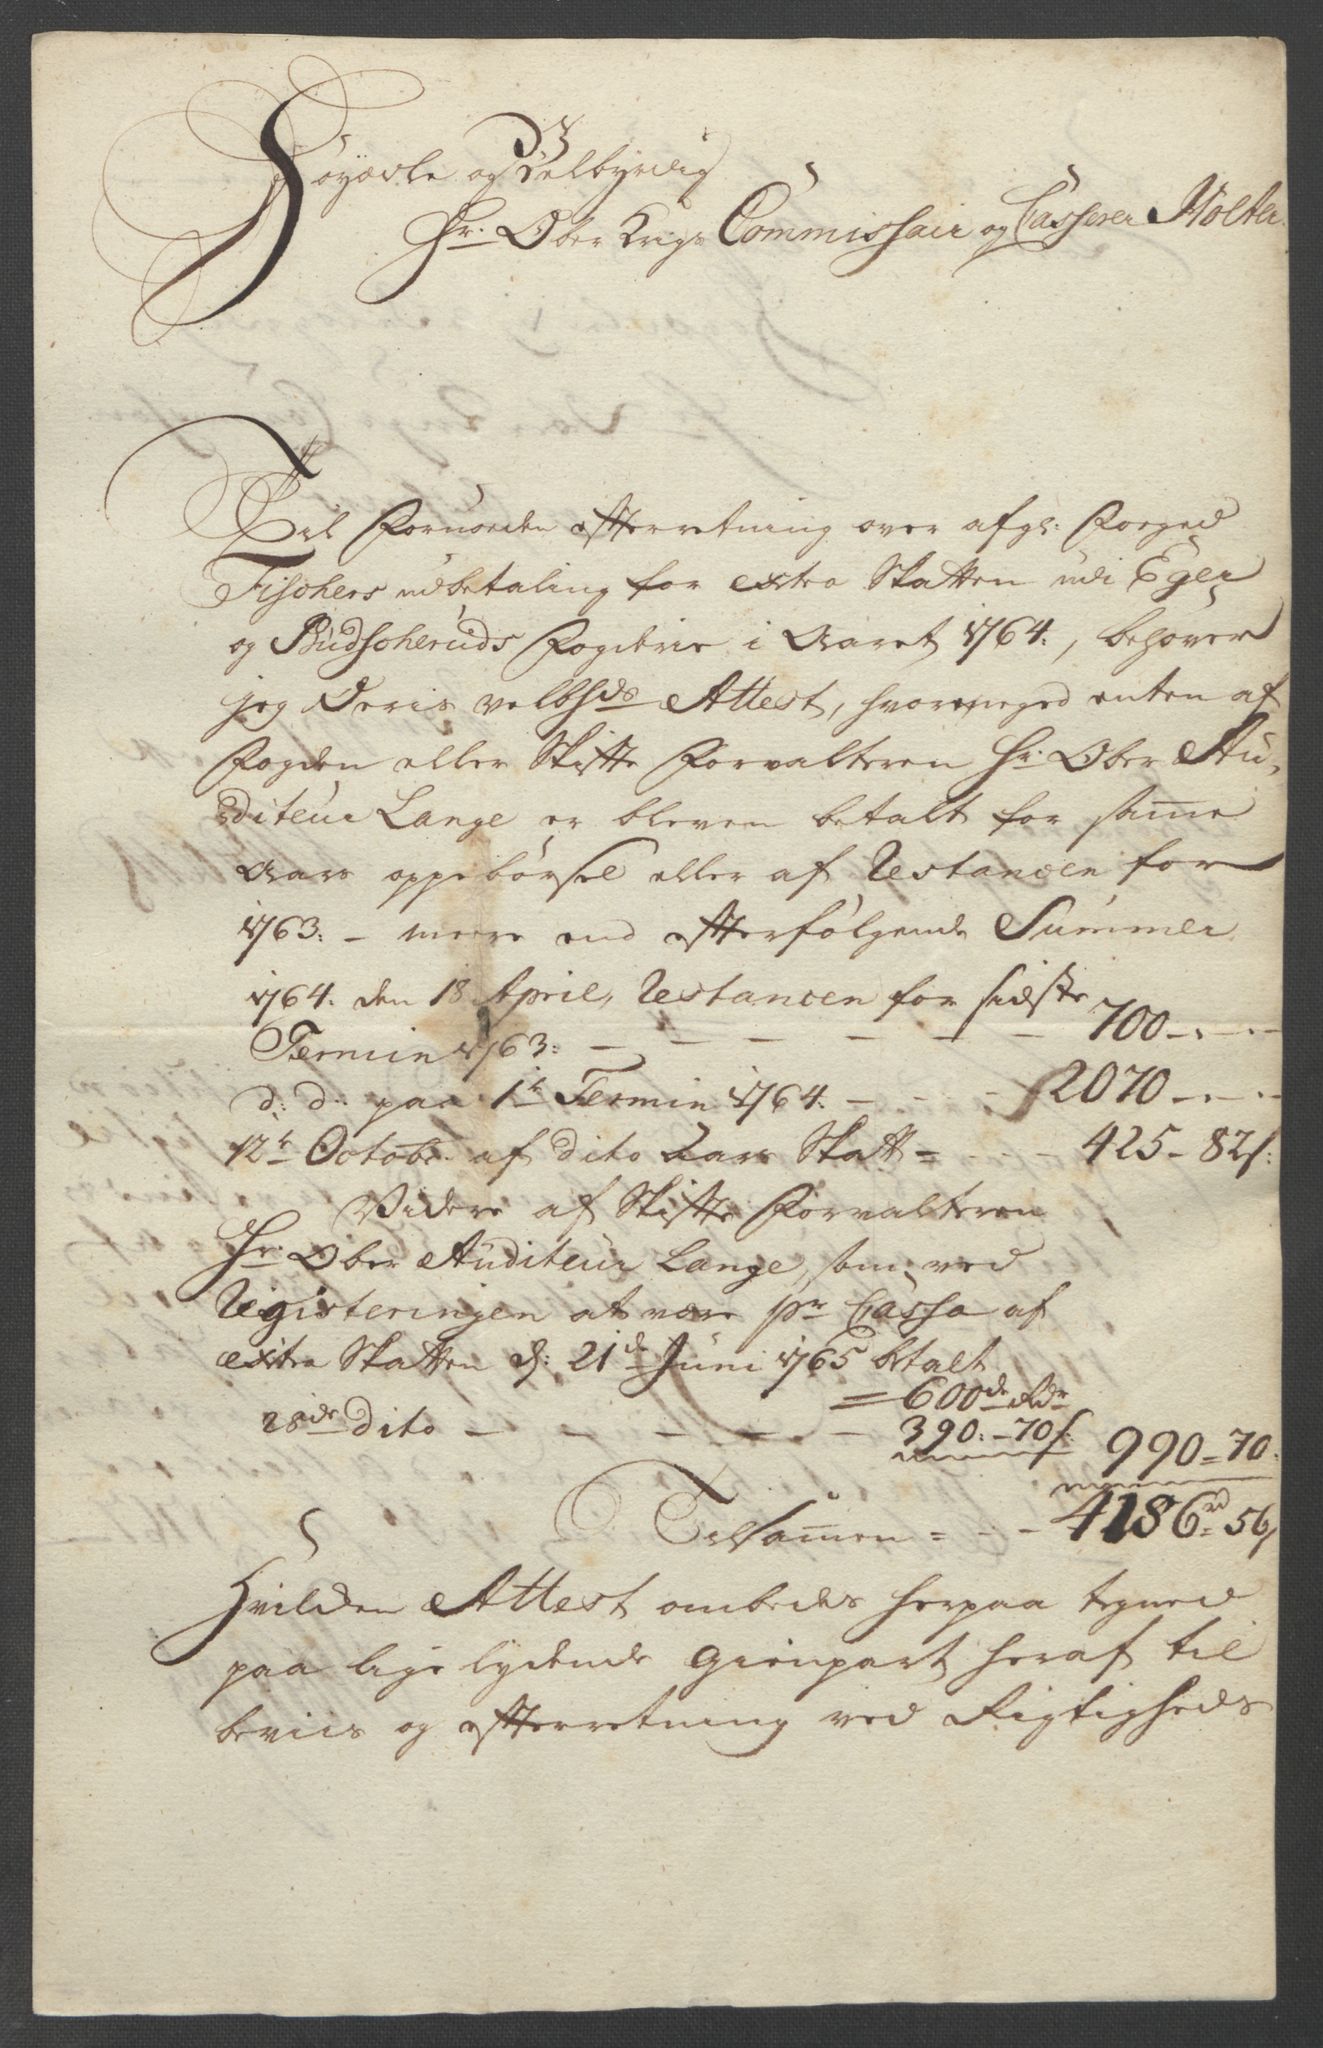 Höyædle og Velbyrdig
Hr. Ober Krigs Commissair og Casserer Holter.
Til Fornøden efterretning over afg: Foged
Fischers udbetaling for extra Skatten udi Eger
og Budscheruds Fogderie i Aaret 1764:, behøver
jeg Deris velbhds Attest, hvor meged enten af
Fogden eller Skifte Forvalteren Hr. Ober Au,
diteur Lange er bleven betalt for same
Aars oppebörsel eller af Restancen for
1763: - meere end efterfølgende Summer
1764. den 18 April, Restancen for sidste
Termin 1763: - - - - - - 700 - . -
d: d: paa 1te Termin 1764. - - - 2070 - . -
12te Octobr. af dito Aars Skatt = - - - 425 - 82s:
Videre af Skifte Forvalteren
Hr. Ober Auditeur Lange, som ved
Registeringen at være pr Cassa af
extra Skatten d: 21de Juni 1765 betalt
= 600de Rdr
28de dito - - - - - - 390. - 70s: 990 = 70.
Tilsamen = - - 4186rd = 56s
Hvilden Attest ombedes herpaa tegned
paa lige lydende Gienpart heraf til
beviis og efterretning ved Rigtigheds